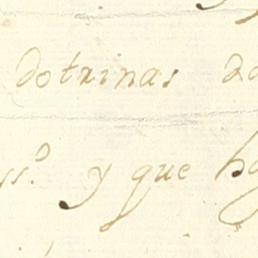 dotrinas
ss.º y que